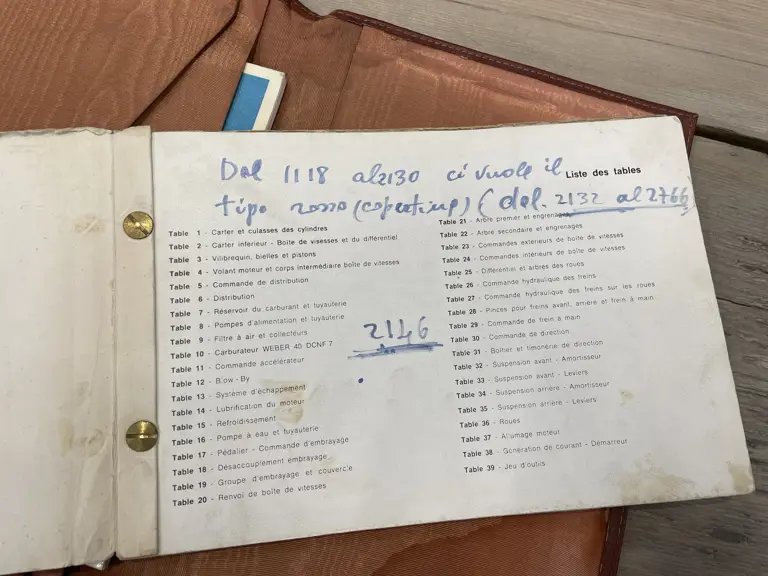 Dal 1118 al 2130 ci vuole il
tipo rosso (copertina) (dal. 2132 al 2766
Liste des tables
Table 1 - Carter et culasses des cylindres
Table 2 - Carter inferieur - Boîte de vitesses et du différentiel
Table 3 - Vilibrequin, bielles et pistons
Table 4 - Volant moteur et corps intermédiaire boîte de vitesses
Table 5 - Commande de distribution
Table 6 - Distribution
Table 7 - Réservoir du carburant et tuyauterie
Table 8 - Pompes d'alimentation et tuyauterie
Table 9 - Filtre à air et collecteurs
Table 10 - Carburateur WEBER 40 DCNF 7
Table 11 - Commande accélérateur
Table 12 - Blow - By
Table 13 - Système d'échappement
Table 14 - Lubrification du moteur
Table 15 - Refroidissement
Table 16 - Pompe à eau et tuyauterie
Table 17 - Pédalier - Commande d'embrayage
Table 18 - Désaccouplement embrayage
Table 19 - Groupe d'embrayage et couvercle
Table 20 - Renvoi de boîte de vitesses
2146
Table 21 - Arbre premier et engrenages
Table 22 - Arbre secondaire et engrenages
Table 23 - Commandes exterieurs de boîte de vitesses
Table 24 - Commandes intérieurs de boîte de vitesses
Table 25 - Différentiel et arbres des roues
Table 26 - Commande hydraulique des freins
Table 27 - Commande hydraulique des freins sur les roues
Table 28 - Pinces pour freins avant, arrière et frein à main
Table 29 - Commande de frein à main
Table 30 - Commande de direction
Table 31 - Boîtier et timonerie de direction
Table 32 - Suspension avant - Amortisseur
Table 33 - Suspension avant - Leviers
Table 34 - Suspension arrière - Amortisseur
Table 35 - Suspension arrière - Leviers
Table 36 - Roues
Table 37 - Allumage moteur
Table 38 - Génération de courant - Démarreur
Table 39 - Jeu d'outils